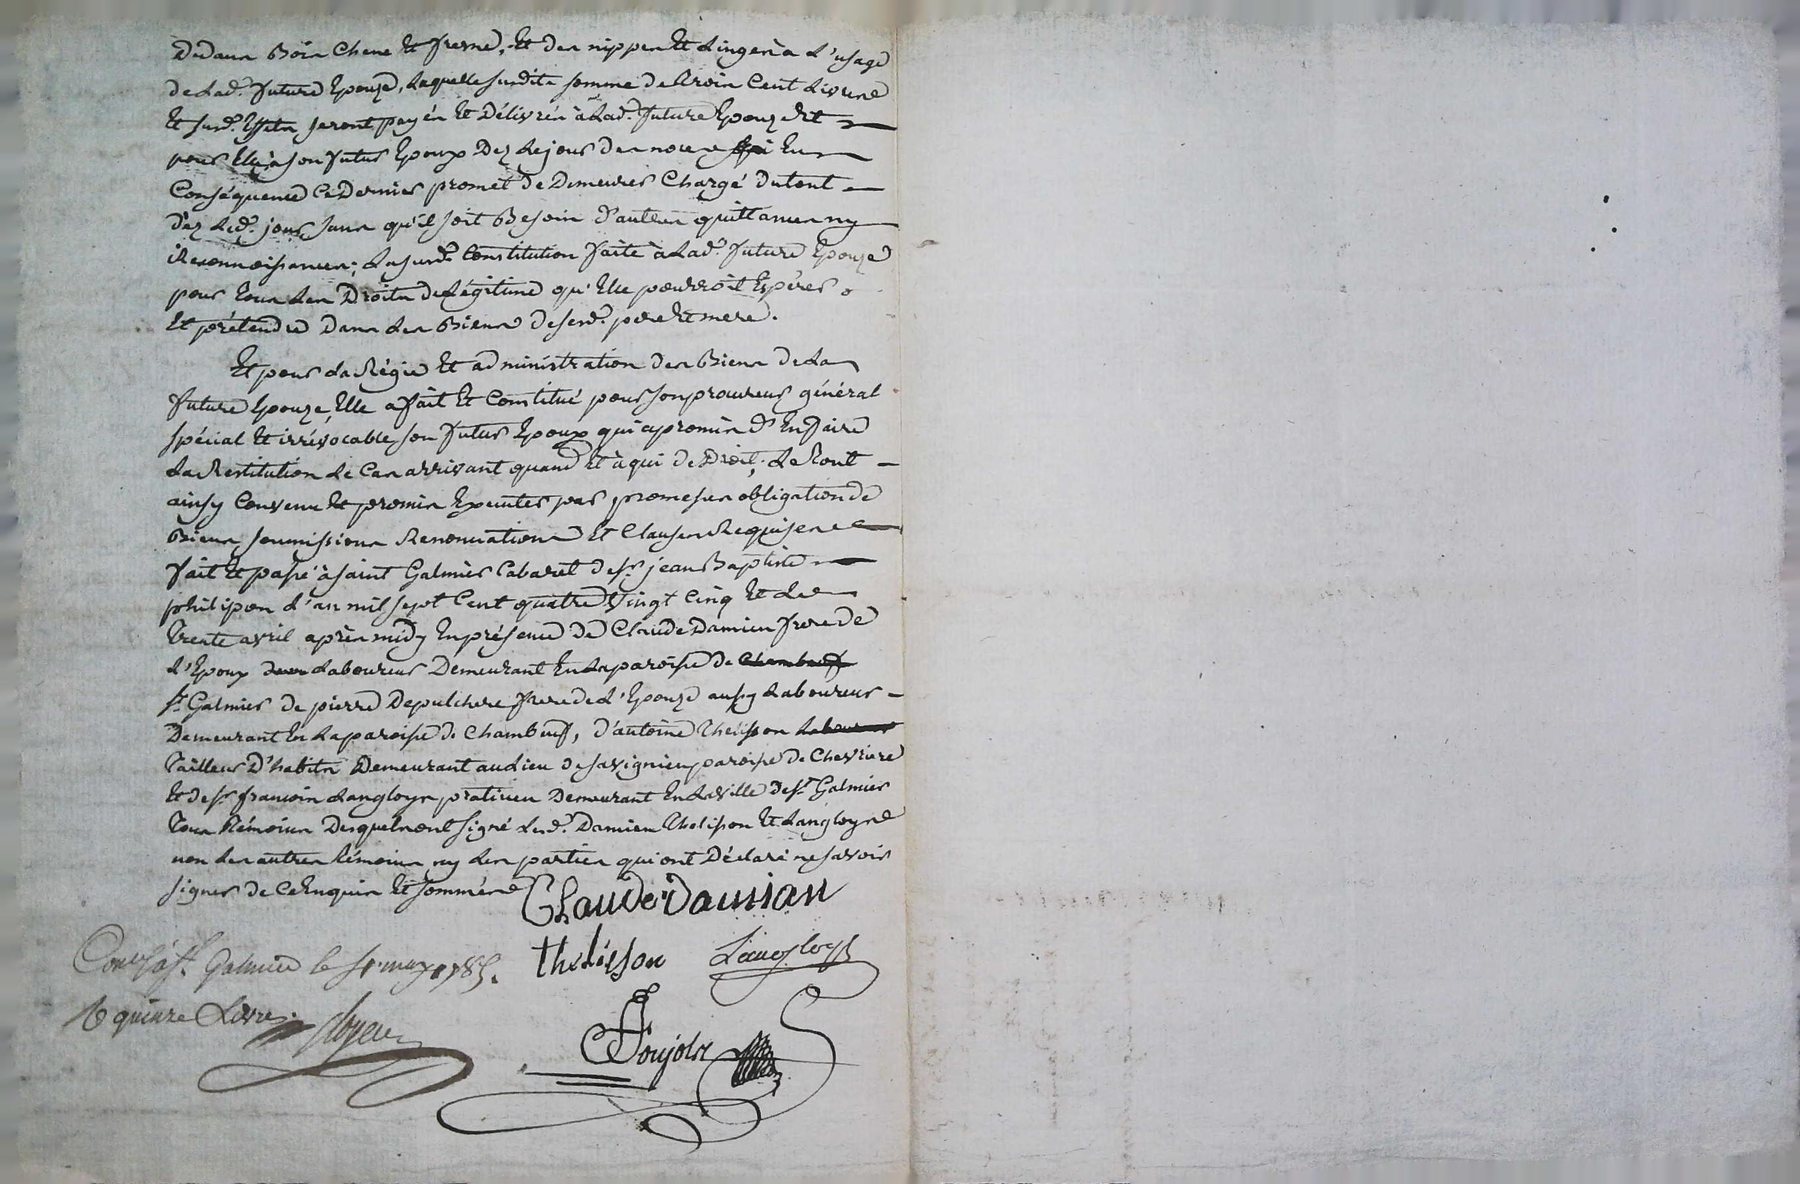 Dedaux Bois Chene Et fresne, Et des nippes Et Linges à L'usage
de Lad. future Epouze, Laquelle susdite somme de trois Cent Livres
Et susd. Effets seront payés Et Délivrés à Lad. future Epouze Et
pour Elle à son futur Epoux Dez Le jour des noces En
Conséquence Ce Dernier promet de Demeurer Chargé dutout
dèz Led. jour sans qu'il soit Besoin d'autres quittances ny
Reconnoissances; Lasusd. Constitution faite à Lad. future Epouze
pour tous Les Droits de Légitime qu'Elle pourroit Espérer
Et prétendre Dans Les Biens de sesd. pere Et mere.
Et pour La Régie Et administration des Biens de La
future Epouze, Elle a fait Et Constitué pour son procureur général
spécial Et irrévocable, son futur Epoux qui a promis d'En faire
La Restitution Le Cas arrivant quand Et à qui de Droit; Le tout
ainsy Convenu Et promis Executer par promesses obligation de
Biens soumissions Renonciations Et Clauses Requises
fait Et passé à saint Galmier Cabaret de sr. jean Baptiste
philipon L'an mil sept Cent quatre Vingt Cinq Et Le
trente avril après midy En présence de Claude Damien frere de
L'Epoux Laboureur Demeurant En La paroisse de Chambeuf
st. Galmier de pierre Depulchere frere de L'Epouze aussy Laboureur
Demeurant En La paroisse de Chambeuf, d'antoine thelisson Laboureur
tailleur D'habits Demeurant au lieu de savignieu paroisse de Chevriere
Et de sr. francois Langloys praticien Demeurant En La Ville de st. Galmier
tous témoins Desquels ont signé Lesd. Damien thelisson Et Langloys
non Les autres témoins ny Les parties qui ont Déclaré ne savoir
signer de Ce Enquis Et sommés
Claude Damian
thelisson Langloys
Con.lé à st. Galmier le may 1785.
R quinze Livres
Poujols